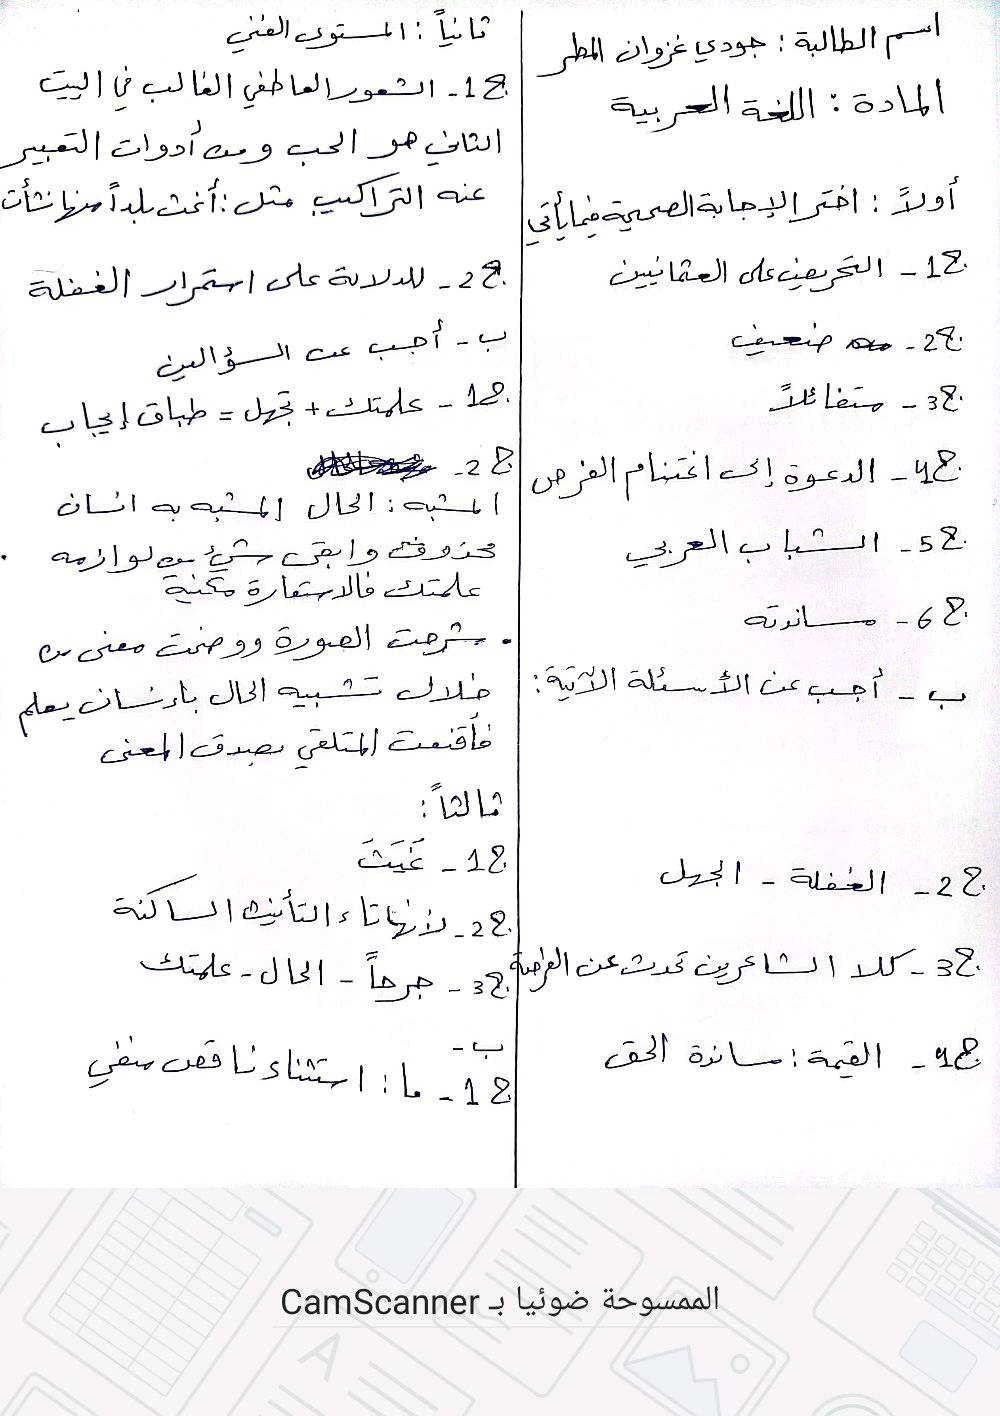 اسم الطالبة : جودي غزوان المطر
المادة : اللغة العربية
أولاً : اختر الإجابة الصحيحة فيما يأتي
ج1 - التحريض على العثمانيين
ج2 - ضعيف
ج3 - متفائلاً
ج4 - الدعوة إلى اغتنام الفرص
ج5 - الشباب العربي
ج6 - مساندته
ب - أجب عن الأسئلة الآتية :
ج2 - الغفلة - الجهل
ج3 - كلا الشاعرين تحدث عن الفرصة
ج4 - القيمة : مساندة الحق
ثانياً : المستوى الفني
ج1 - الشعور العاطفي الغالب في البيت
الثاني هو الحب ومن أدوات التعبير
عنه التراكيب مثل : أغث بلداً منها نشأت
ج2 - للدلالة على استمرار الغفلة
ب - أجب عن السؤالين
ج1 - علمتك + تجهل = طباق إيجاب
ج2 -
المشبه : الحال المشبه به انسان
محذوف وابقى شيء من لوازمه
علمتك فالاستعارة مكنية
. شرحت الصورة ووضحت معنى من
خلال تشبيه الحال بإنسان يعلم
فأقنعت المتلقي بصدق المعنى
ثالثاً :
ج1 - غَيَثَ
ج2 - لأنها تاء التأنيث الساكنة
ج3 - جرحاً - الحال - علمتك
ب -
ج1 - ما : استثناء ناقص منفي
الممسوحة ضوئيا بـ CamScanner